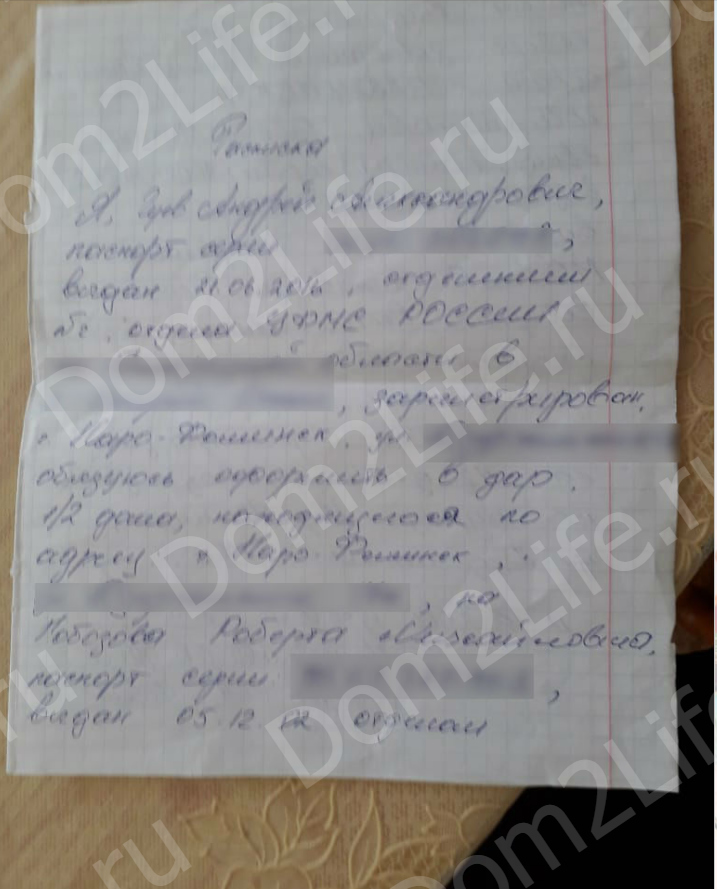 Расписка
Я, Зуев Андрей Александрович,
паспорт серии ,
выдан 21.06.2016, отделением
№2 отдела УФМС РОССИИ
области в
, зарегистрирован,
г. Наро-Фоминск, ул.
обязуюсь оформить в дар
1/2 дома, находящегося по
адресу г. Наро-Фоминск,
, на
Роберта Михайловича,
паспорт серии ,
выдан 05.12. отделом
Dom2Life.ru
Dom2Life.ru
Dom2Life.ru
Dom2Life.ru